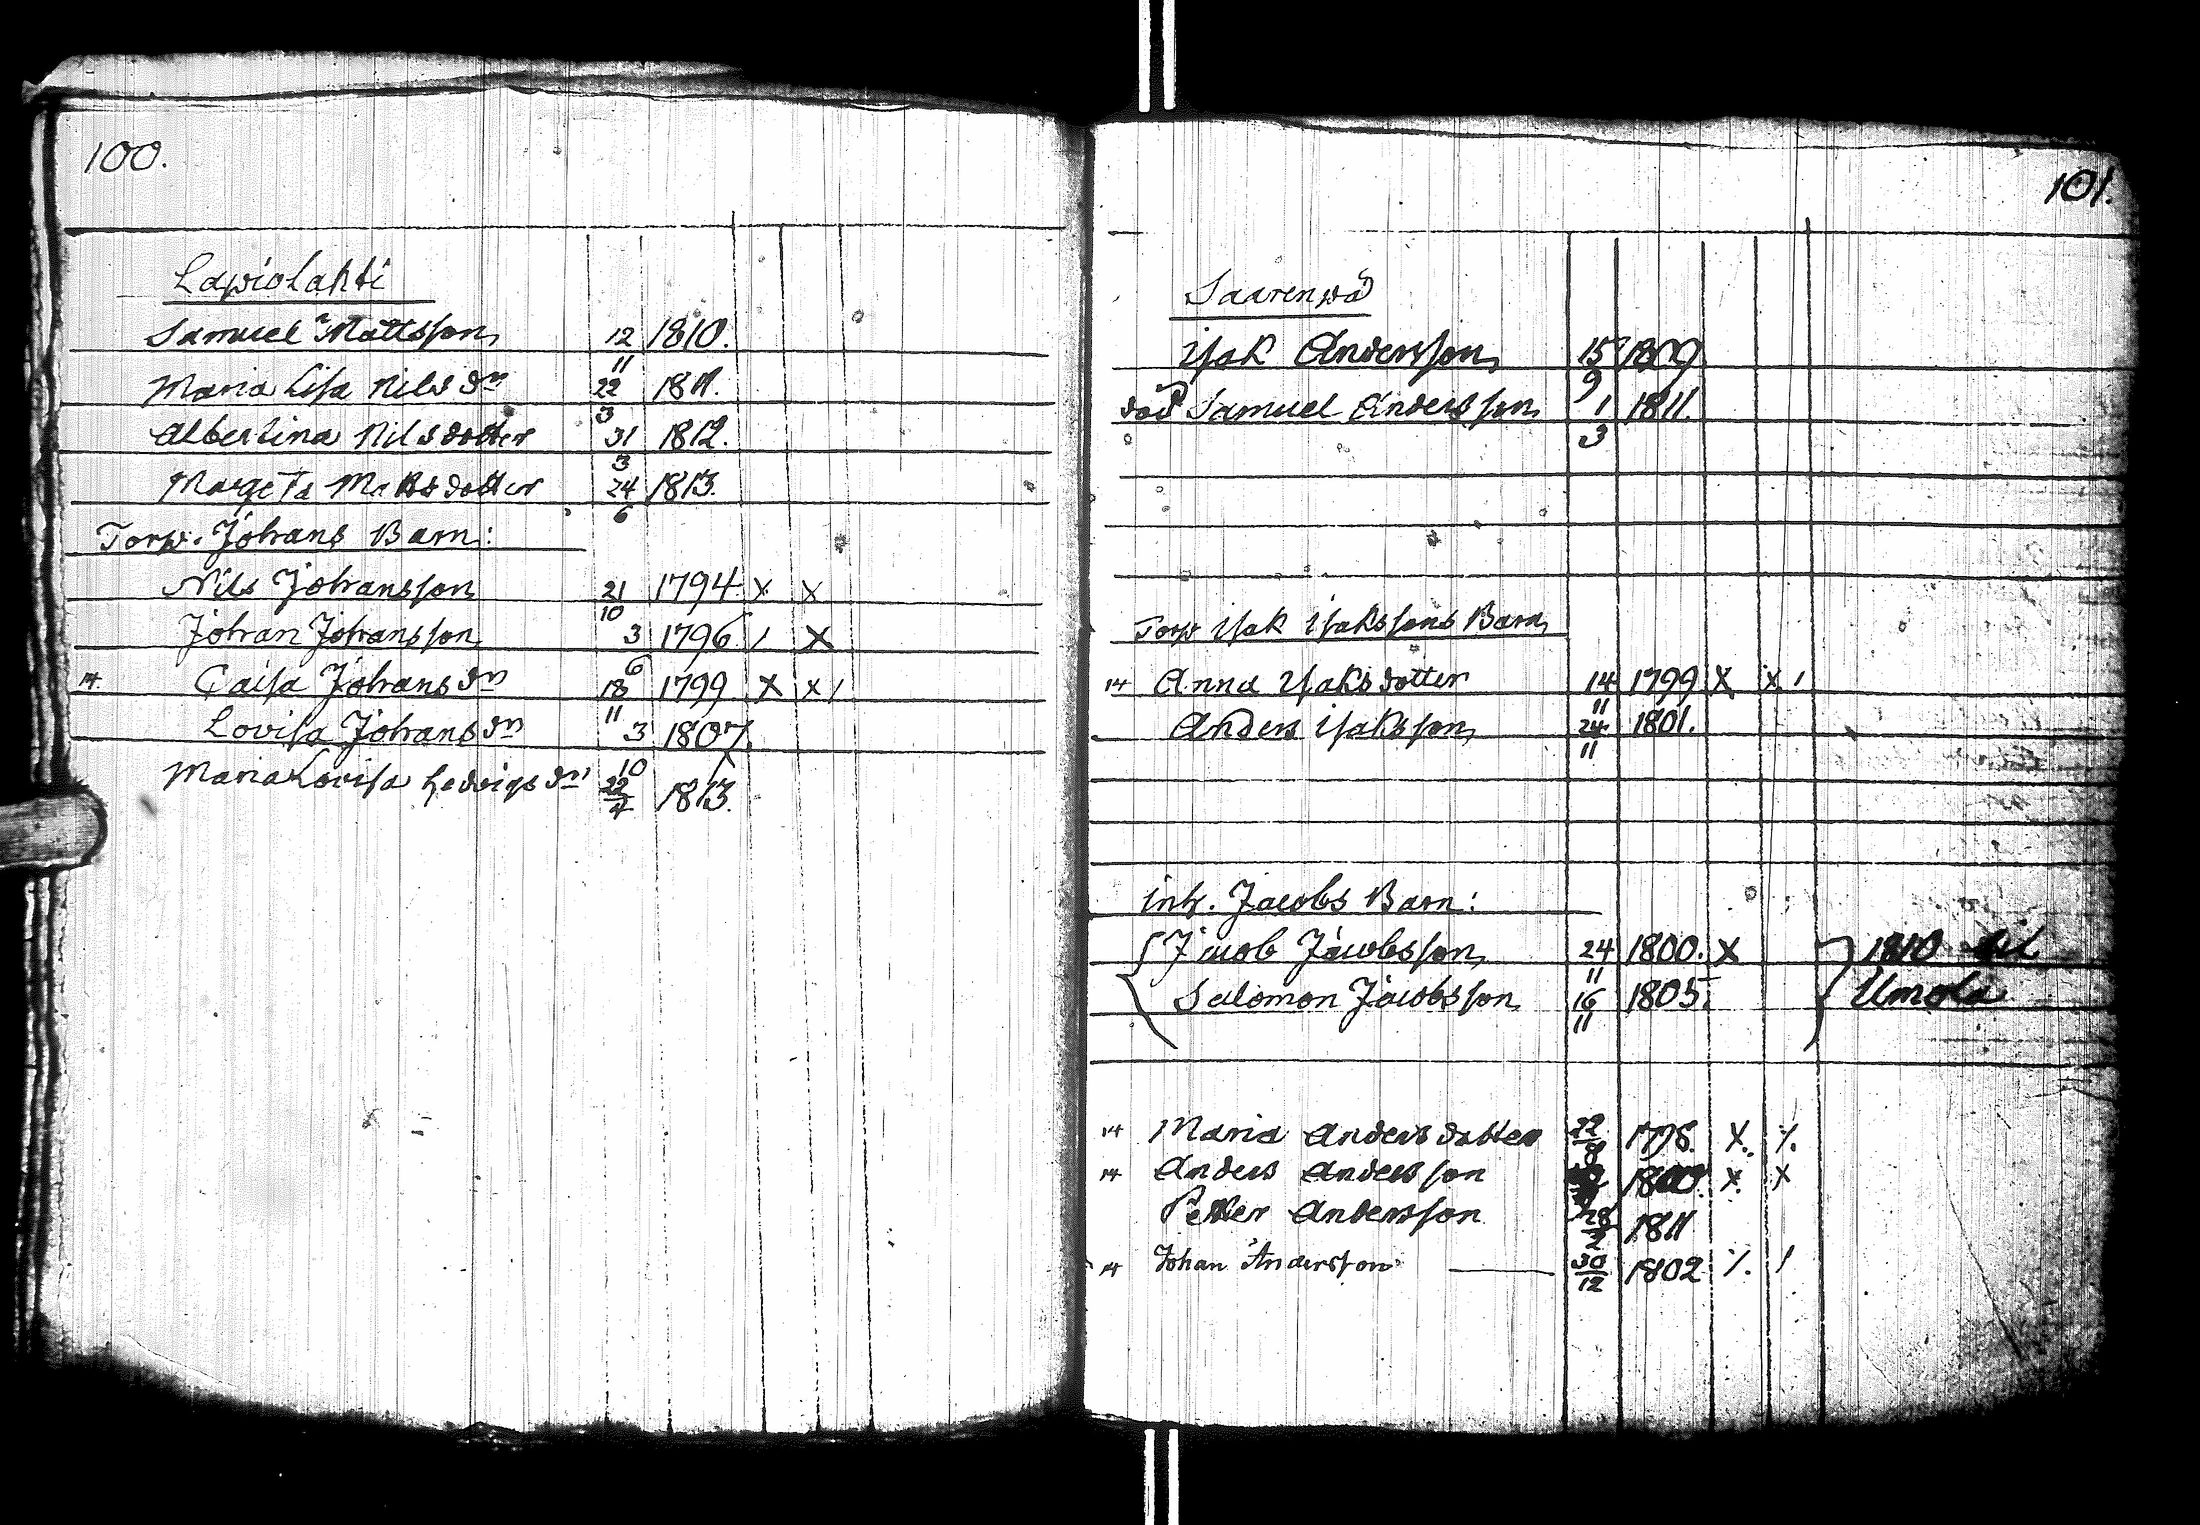 100.
Lapiolahti
Samuel Mattsson 12/11 1810.
Maria Lisa Nilsdr 22/3 1811.
Albertina Nilsdotter 31/3 1812.
Margeta Mattsdotter 24/6 1813.
Torp. Johans Barn:
Nils Johansson 21/10 1794 x x
Johan Johansson 3/6 1796 / X
14. Caisa Johansdr 18/11 1799 x x /
Lovisa Johansdr 3/10 1807.
Maria Lovisa Hedvigsdr 22/4 1813.
101.
Saarenpä
Isak Andersson 15/9 1809
död Samuel Andersson 1/3 1811.
Torp Isak Isakssons Barn
14 Anna Isaksdotter 14/11 1799 X x /
Anders Isaksson 24/11 1801.
inh. Jacobs Barn:
Jacob Jacobsson 24/11 1800. X 1810 til
Salomon Jacobsson 16/11 1805. Umola
14 Maria Andersdotter 22/8 X.
14 Anders Andersson 1800 x. x
Petter Andersson 28/2 1811
14 Johan Andersson 30/12 1802 /